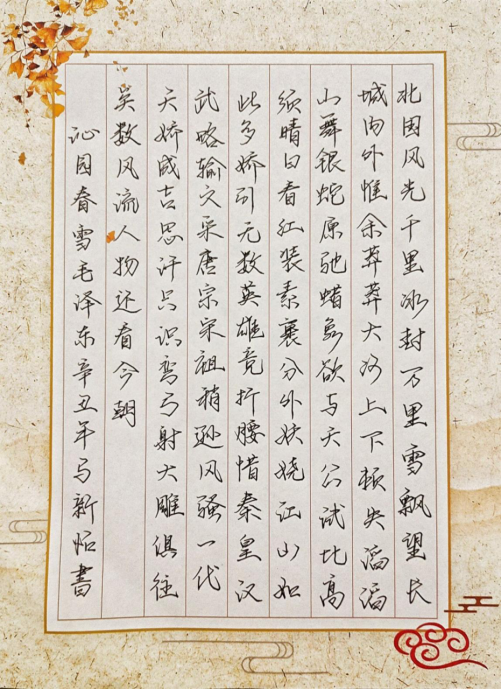 北国风光千里冰封万里雪飘望长
城内外惟余莽莽大河上下顿失滔滔
山舞银蛇原驰蜡象欲与天公试比高
须晴日看红装素裹分外妖娆江山如
此多娇引无数英雄竞折腰惜秦皇汉
武略输文采唐宗宋祖稍逊风骚一代
天娇成吉思汗只识弯弓射大雕俱往
矣数风流人物还看今朝
沁园春雪毛泽东辛丑年马新怊書